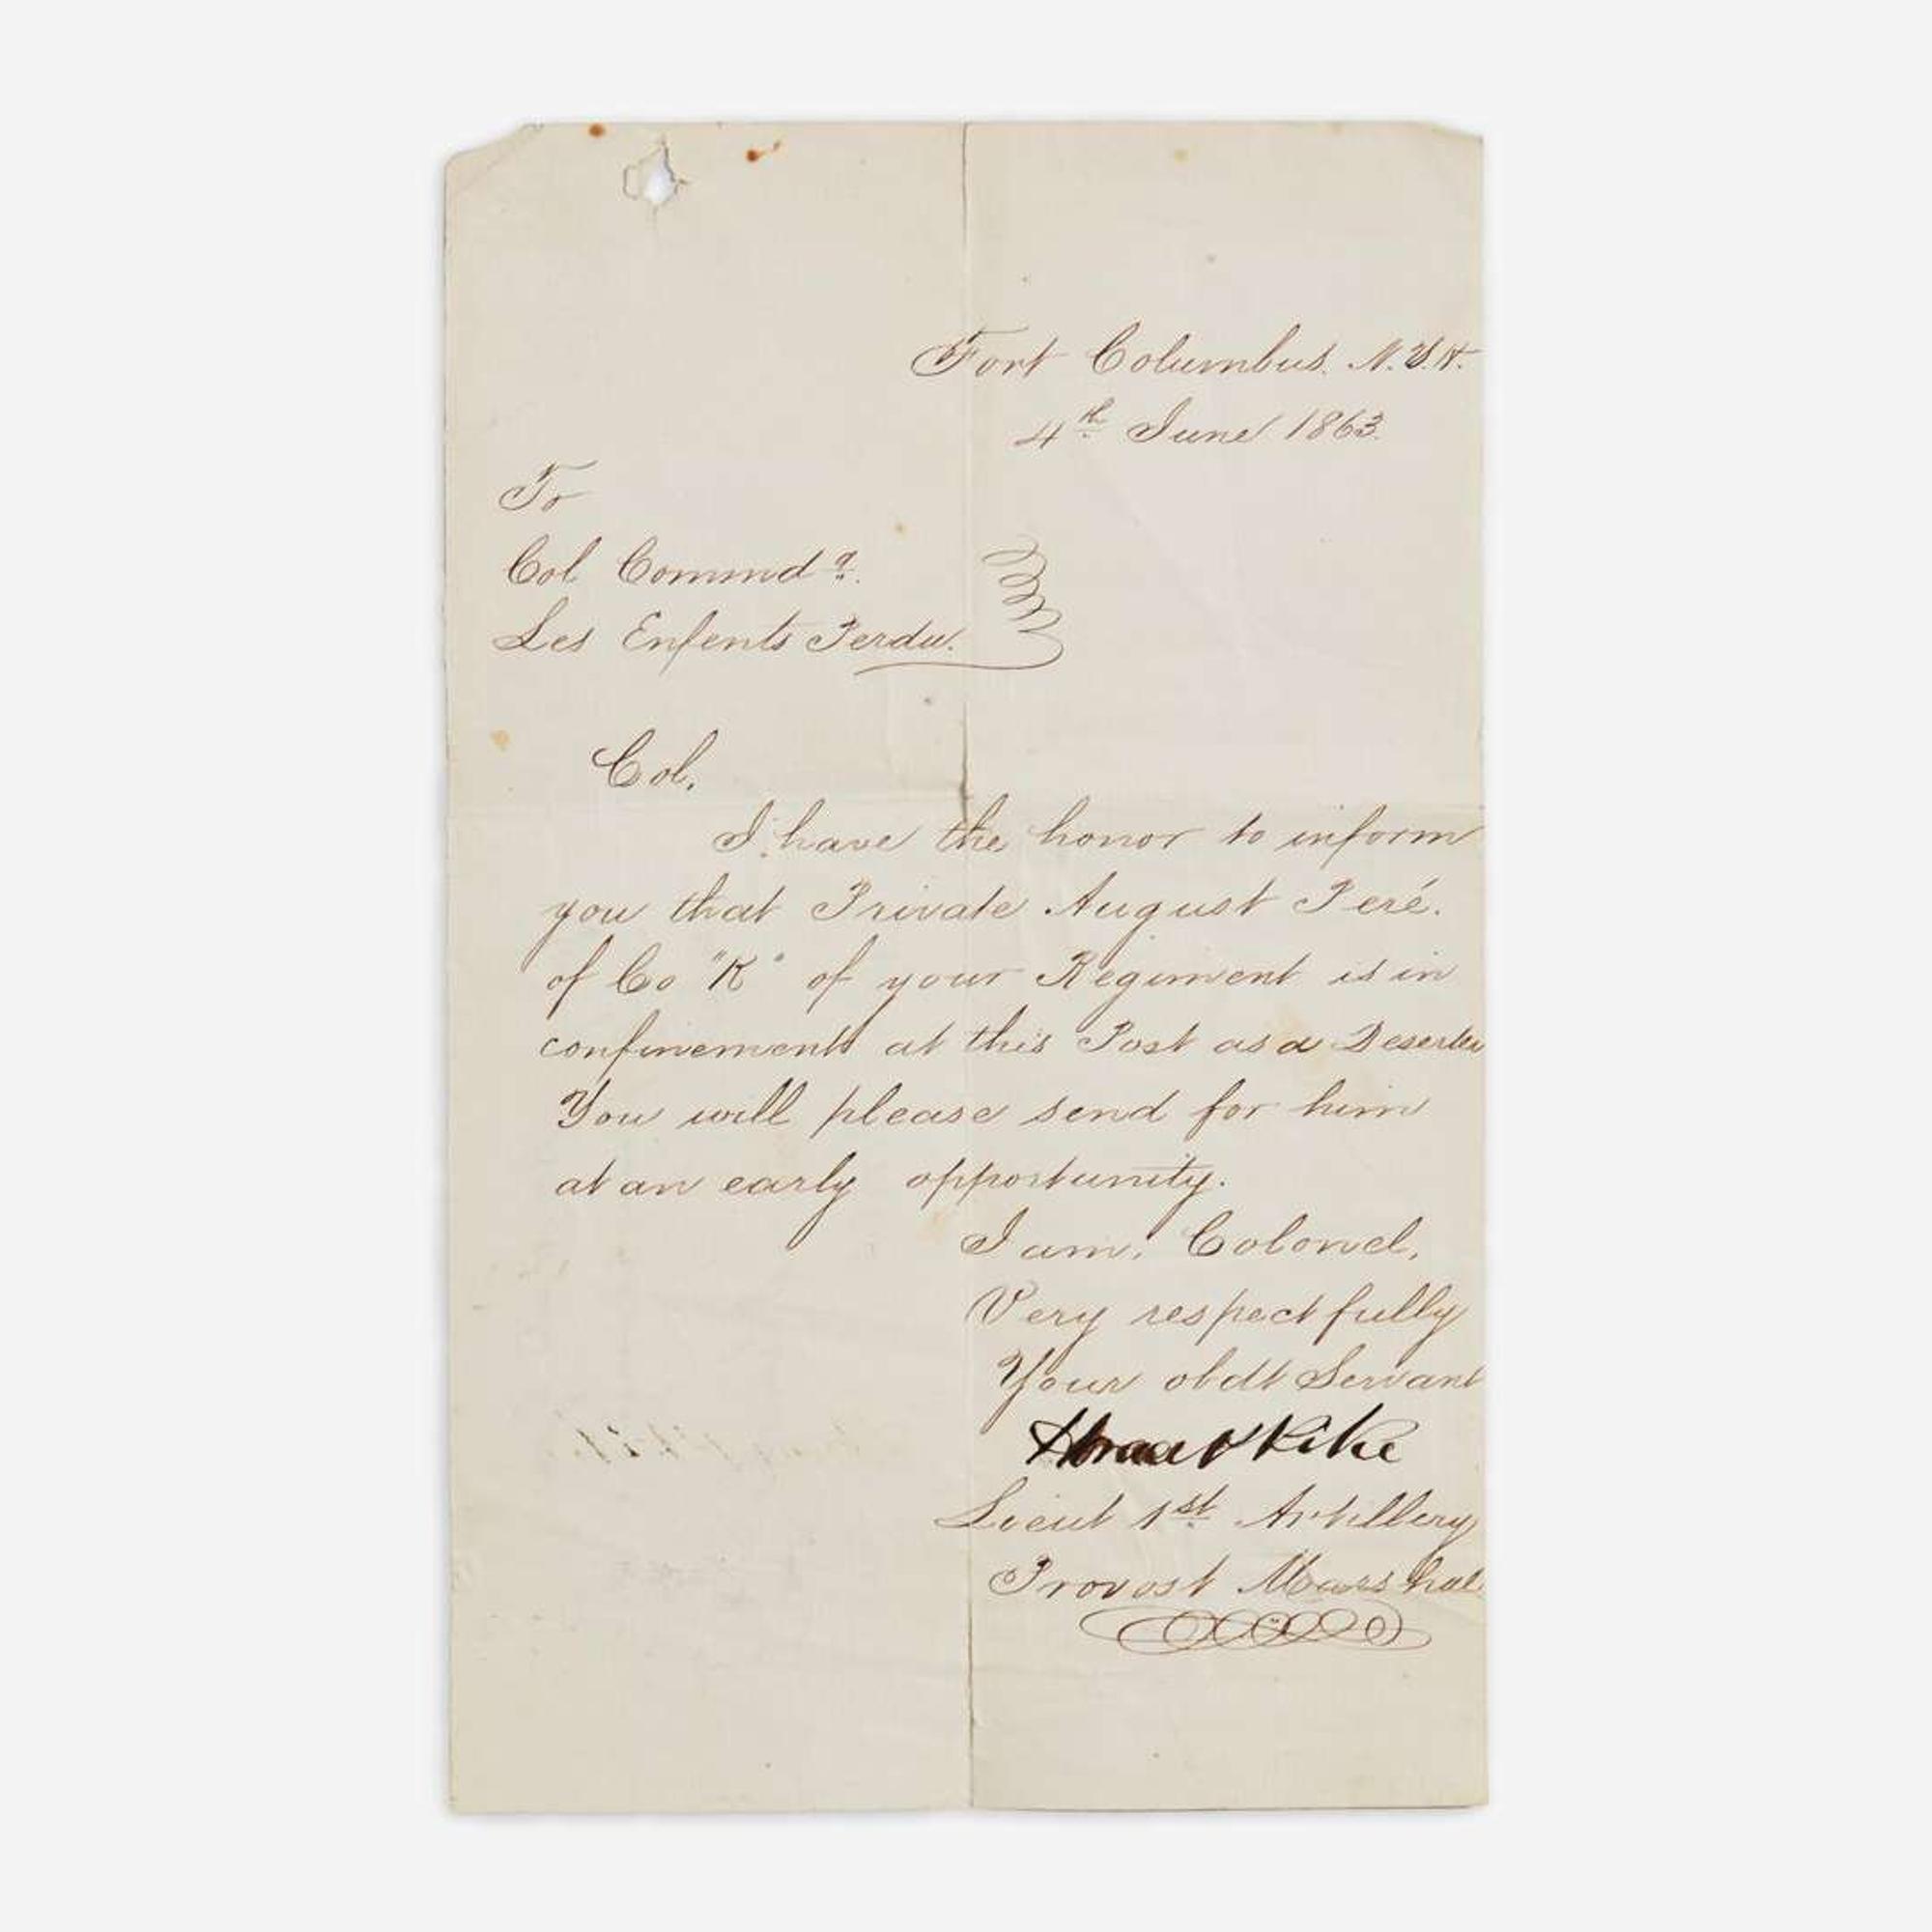 Fort Columbus. N.Y.H.
4th June 1863.
To
Col Commdg.
Les Enfents Perdu.
Col.
I have the honor to inform
you that Private August Peré.
of Co "K" of your Regiment is in
confinement at this Post as a Deserter
You will please send for him
at an early opportunity.
I am, Colonel,
Very respectfully
Your obdt Servant
Pike
Lieut 1st Artillery
Provost Marshal